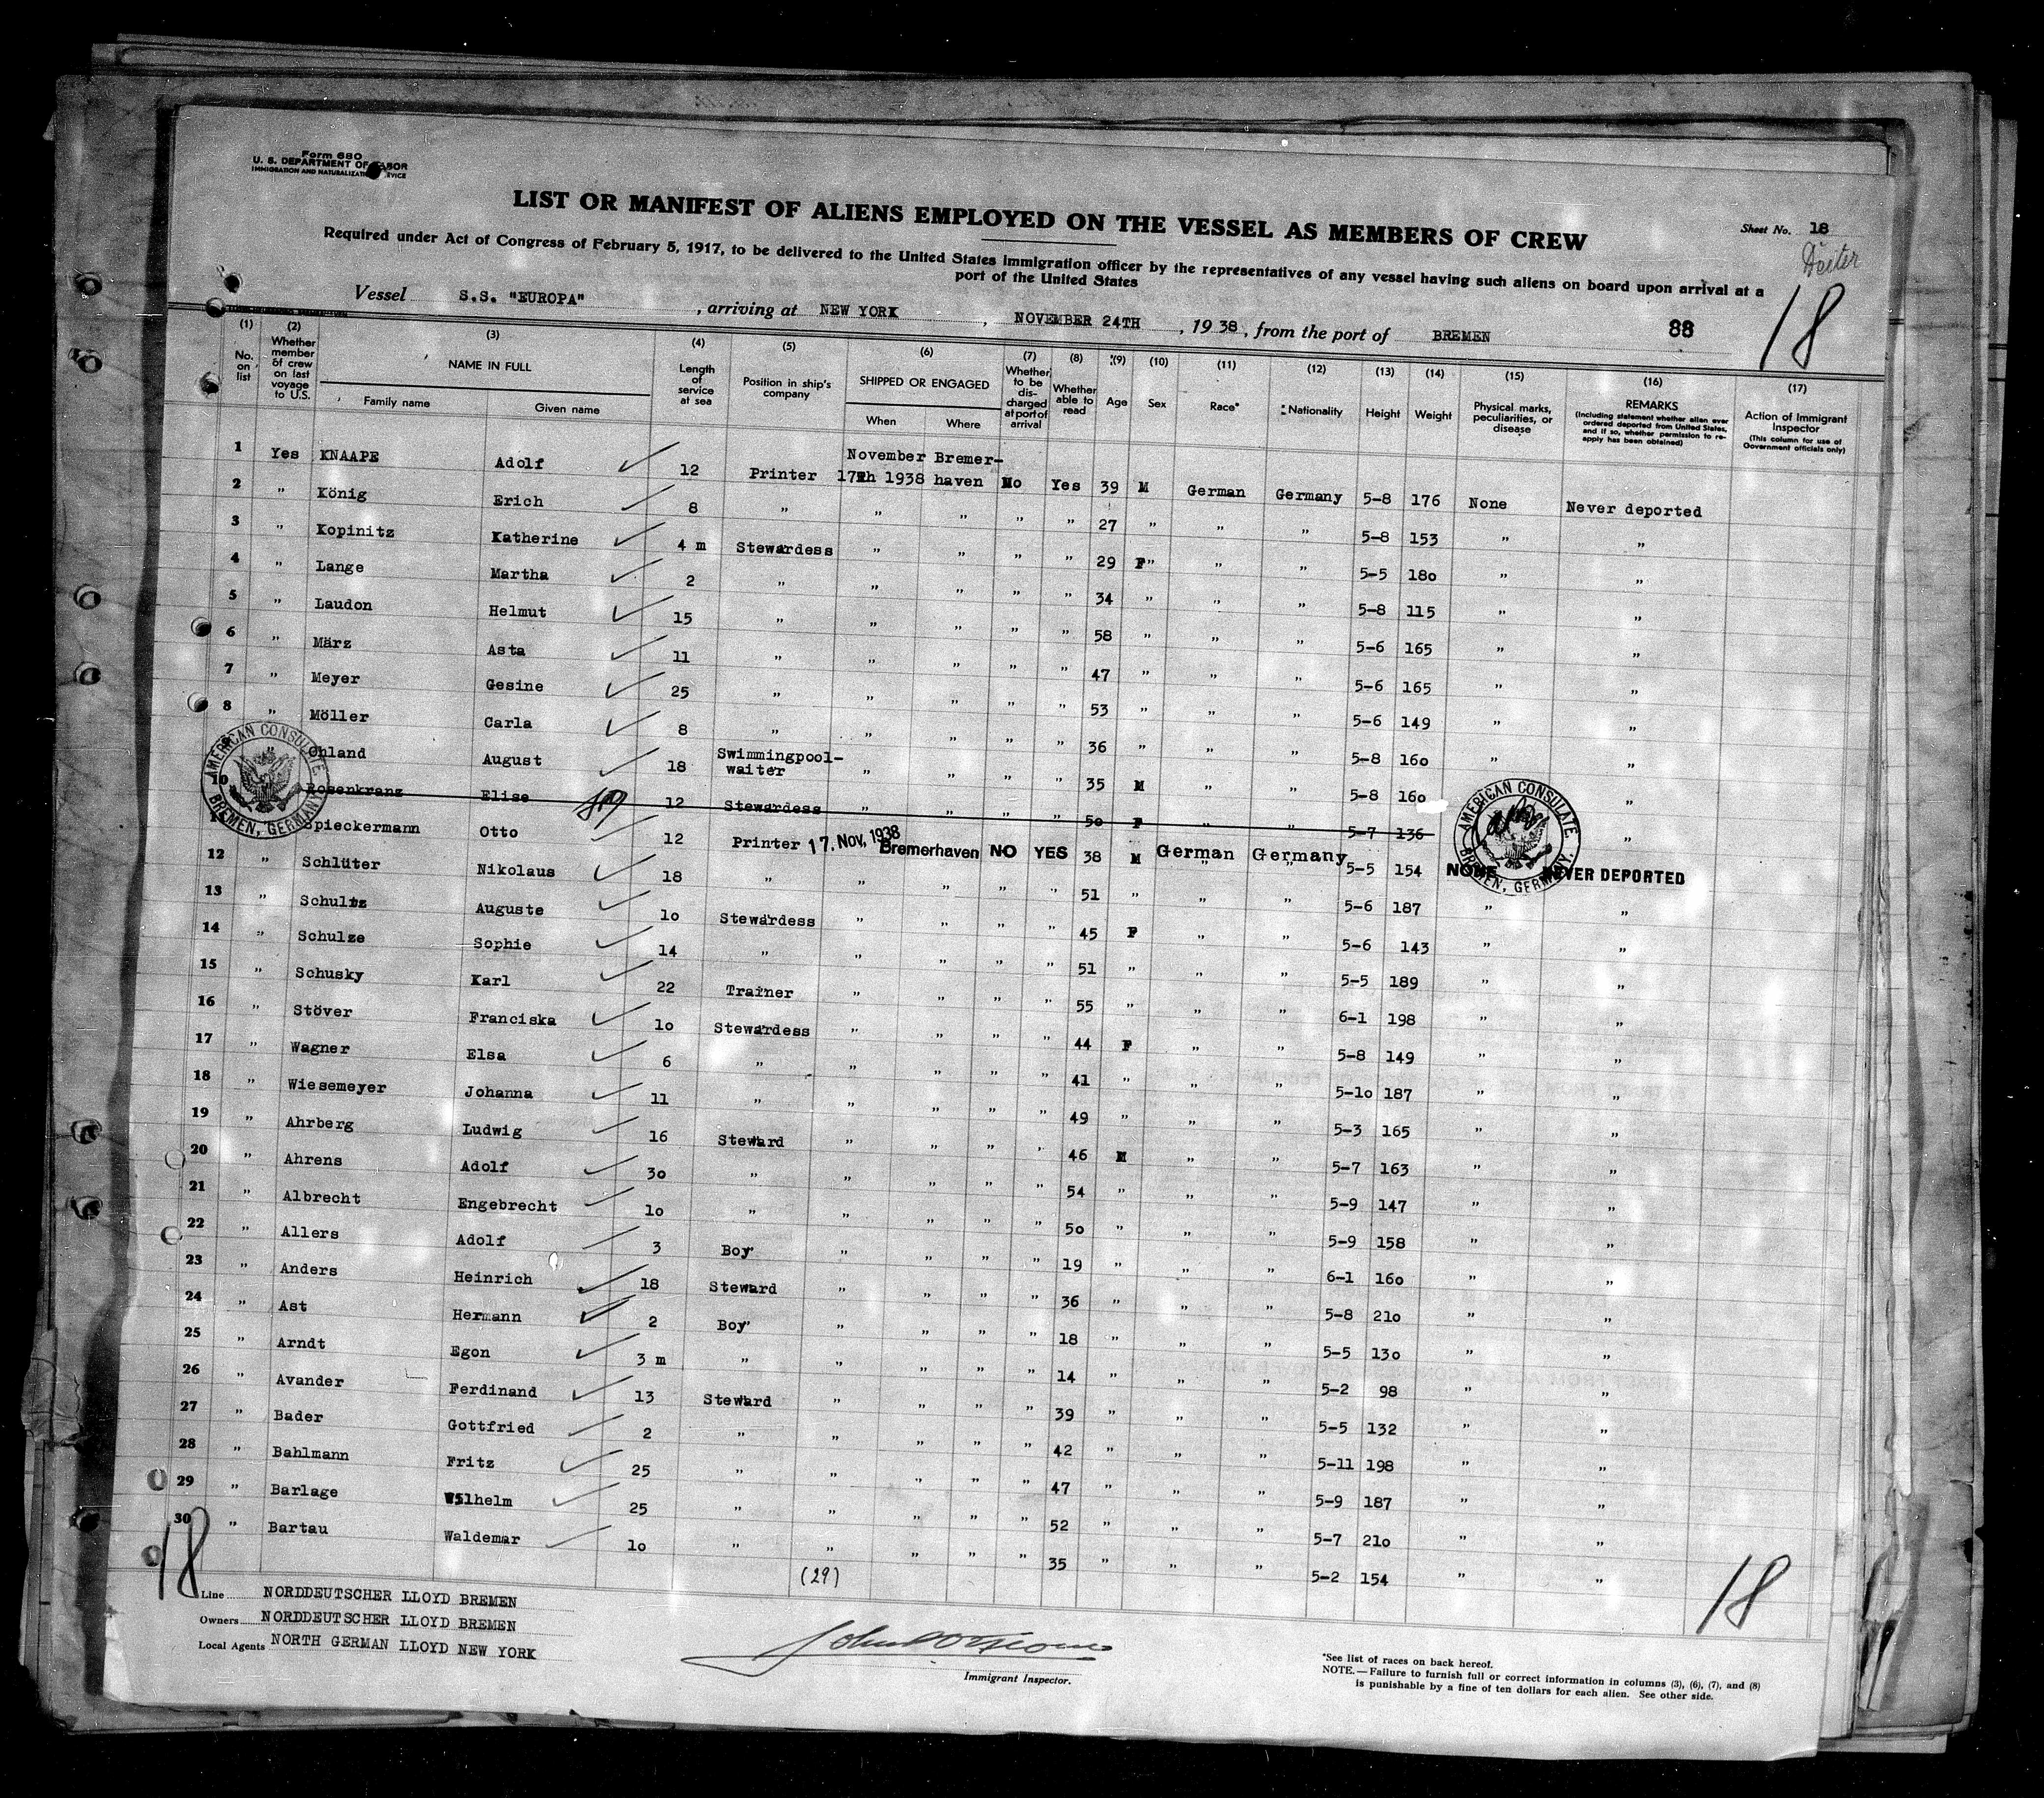 Form 680
U. S. DEPARTMENT OF LABOR
IMMIGRATION AND NATURALIZATION SERVICE
LIST OR MANIFEST OF ALIENS EMPLOYED ON THE VESSEL AS MEMBERS OF CREW
Sheet No. 18
Required under Act of Congress of February 5, 1917, to be delivered to the United States immigration officer by the representatives of any vessel having such aliens on board upon arrival at a
port of the United States
18
Vessel S.S. "EUROPA" , arriving at NEW YORK , NOVEMBER 24TH , 1938, from the port of BREMEN 88
(1) (2) (3) (4) (5) (6) (7) (8) (9) (10) (11) (12) (13) (14) (15) (16) (17)
No. on list
Whether member of crew on last voyage to U.S.
NAME IN FULL
Family name Given name
Length of service at sea
Position in ship's company
SHIPPED OR ENGAGED
When Where
Whether to be discharged at port of arrival
Whether able to read
Age Sex Race* Nationality Height Weight
Physical marks, peculiarities, or disease
REMARKS
(Including statement whether alien ever ordered deported from United States, and if so, whether permission to reapply has been obtained)
Action of Immigrant Inspector
(This column for use of Government officials only)
1 Yes KNAAPE Adolf 12 Printer November 17th 1938 Bremerhaven No Yes 39 M German Germany 5-8 176 None Never deported
2 " König Erich 8 " " " " " 27 " " " 5-8 153 " "
3 " Kopinitz Katherine 4 m Stewardess " " " " 29 F" " " 5-5 180 " "
4 " Lange Martha 2 " " " " " 34 " " " 5-8 115 " "
5 " Laudon Helmut 15 " " " " " 58 " " " 5-6 165 " "
6 " März Asta 11 " " " " " 47 " " " 5-6 165 " "
7 " Meyer Gesine 25 " " " " " 53 " " " 5-6 149 " "
8 " Möller Carla 8 " " " " " 36 " " " 5-8 160 " "
" Ohland August 18 Swimmingpool-waiter " " " " 35 M " " 5-8 160 "
10 Rosenkranz Elise 12 Stewardess " " " " 50 F " " 5-7 136 "
Spieckermann Otto 12 Printer 17. Nov, 1938 Bremerhaven NO YES 38 M German Germany 5-5 154 NONE NEVER DEPORTED
12 " Schlüter Nikolaus 18 " " " " " 51 " " " 5-6 187 " "
13 " Schultz Auguste 10 Stewardess " " " " 45 F " " 5-6 143 " "
14 " Schulze Sophie 14 " " " " " 51 " " " 5-5 189 " "
15 " Schusky Karl 22 Trainer " " " " 55 " " " 6-1 198 " "
16 " Stöver Franciska 10 Stewardess " " " " 44 F " " 5-8 149 " "
17 " Wagner Elsa 6 " " " " " 41 " " " 5-10 187 " "
18 " Wiesemeyer Johanna 11 " " " " " 49 " " " 5-3 165 " "
19 " Ahrberg Ludwig 16 Steward " " " " 46 M " " 5-7 163 " "
20 " Ahrens Adolf 30 " " " " " 54 " " " 5-9 147 " "
21 " Albrecht Engebrecht 10 " " " " " 50 " " " 5-9 158 " "
22 " Allers Adolf 3 Boy " " " " 19 " " " 6-1 160 " "
23 " Anders Heinrich 18 Steward " " " " 36 " " " 5-8 210 " "
24 " Ast Hermann 2 Boy " " " " 18 " " " 5-5 130 " "
25 " Arndt Egon 3 m " " " " " 14 " " " 5-2 98 " "
26 " Avander Ferdinand 13 Steward " " " " 39 " " " 5-5 132 " "
27 " Bader Gottfried 2 " " " " " 42 " " " 5-11 198 " "
28 " Bahlmann Fritz 25 " " " " " 47 " " " 5-9 187 " "
29 " Barlage Wilhelm 25 " " " " " 52 " " " 5-7 210 " "
30 " Bartau Waldemar 10 " " " " " 35 " " " 5-2 154 " "
AMERICAN CONSULATE
BREMEN, GERMANY
AMERICAN CONSULATE
BREMEN, GERMANY.
18
(29)
18
Line NORDDEUTSCHER LLOYD BREMEN
Owners NORDDEUTSCHER LLOYD BREMEN
Local Agents NORTH GERMAN LLOYD NEW YORK
Immigrant Inspector.
*See list of races on back hereof.
NOTE.—Failure to furnish full or correct information in columns (3), (6), (7), and (8)
is punishable by a fine of ten dollars for each alien. See other side.